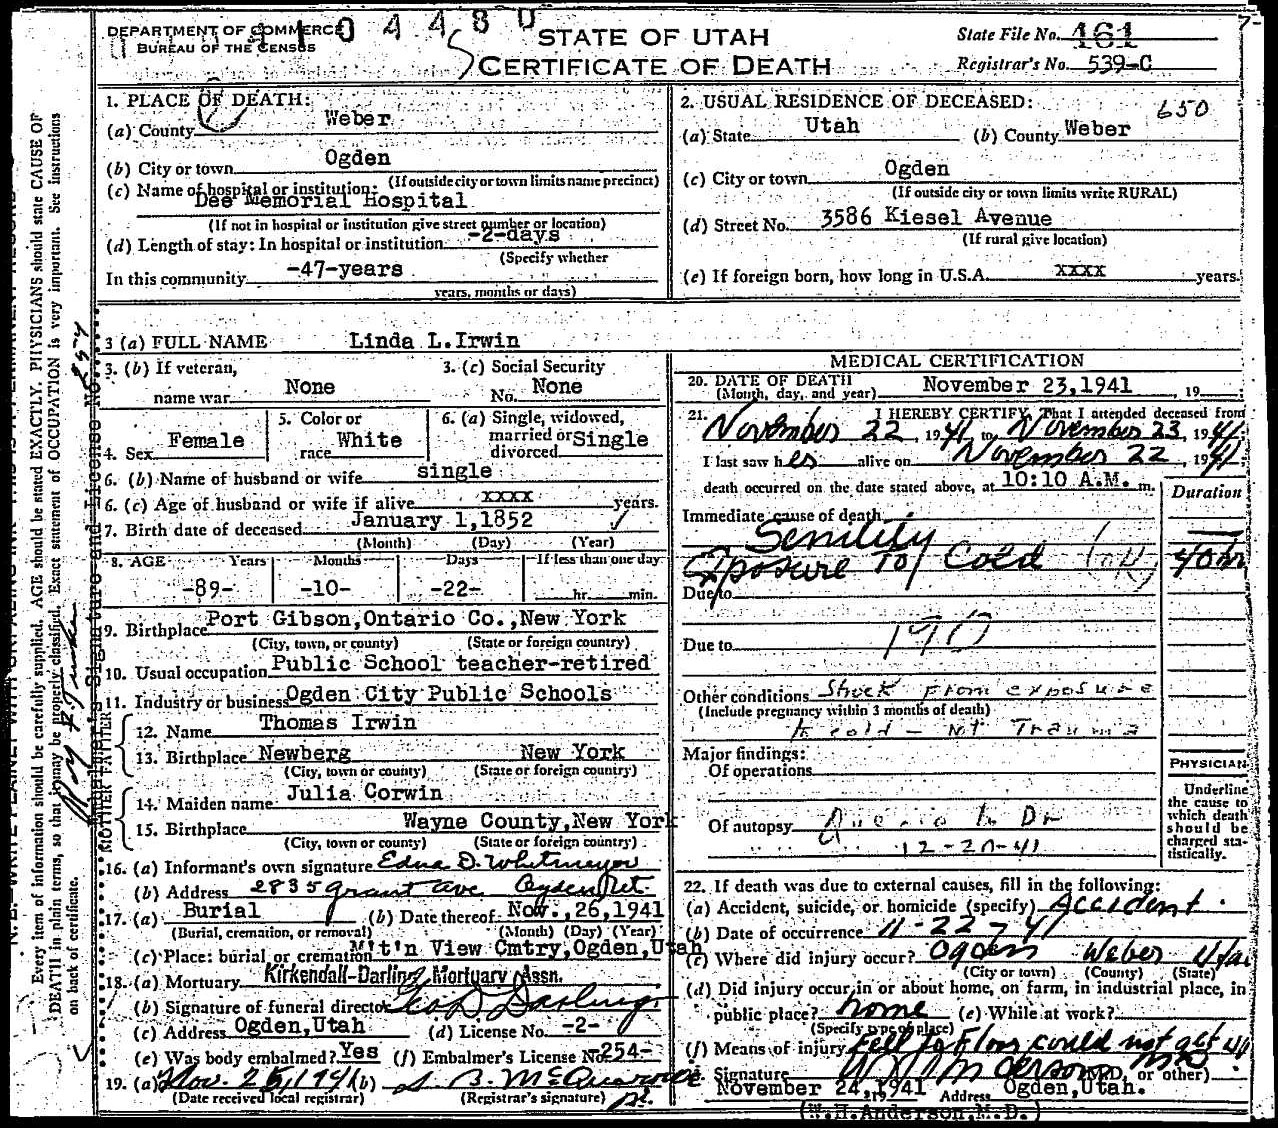 DEPARTMENT OF COMMERCE
BUREAU OF THE CENSUS
STATE OF UTAH
CERTIFICATE OF DEATH
State File No. 161
Registrar's No. 539-C
1. PLACE OF DEATH:
(a) County Weber
(b) City or town Ogden
(If outside city or town limits name precinct)
(c) Name of hospital or institution:
Dee Memorial Hospital
(If not in hospital or institution give street number or location)
(d) Length of stay: In hospital or institution -2-days
(Specify whether
In this community -47-years
years, months or days)
2. USUAL RESIDENCE OF DECEASED: 650
(a) State Utah (b) County Weber
(c) City or town Ogden
(If outside city or town limits write RURAL)
(d) Street No. 3586 Kiesel Avenue
(If rural give location)
(e) If foreign born, how long in U.S.A. xxxx years.
3 (a) FULL NAME Linda L. Irwin
3. (b) If veteran, name war None
3. (c) Social Security No. None
4. Sex Female
5. Color or race White
6. (a) Single, widowed, married or divorced Single
6. (b) Name of husband or wife single
6. (c) Age of husband or wife if alive xxxx years.
7. Birth date of deceased January 1,1852
(Month) (Day) (Year)
8. AGE Years Months Days If less than one day
-89- -10- -22- hr. min.
9. Birthplace Port Gibson,Ontario Co.,New York
(City, town, or county) (State or foreign country)
10. Usual occupation Public School teacher-retired
11. Industry or business Ogden City Public Schools
FATHER
12. Name Thomas Irwin
13. Birthplace Newberg New York
(City, town or county) (State or foreign country)
MOTHER
14. Maiden name Julia Corwin
15. Birthplace Wayne County,New York
(City, town or county) (State or foreign country)
16. (a) Informant's own signature Edna D. Whitmeyer
(b) Address 2835 Grant Ave Ogden Ut.
17. (a) Burial (b) Date thereof Nov.,26,1941
(Burial, cremation, or removal) (Month) (Day) (Year)
(c) Place: burial or cremation M't'n View Cmtry,Ogden,Utah
18. (a) Mortuary Kirkendall-Darling Mortuary Assn.
(b) Signature of funeral director Geo D Darling
(c) Address Ogden,Utah (d) License No. -2-
(e) Was body embalmed? Yes (f) Embalmer's License No. -254-
19. (a) Nov. 25, 1941 (b)
(Date received local registrar) (Registrar's signature)
MEDICAL CERTIFICATION
20. DATE OF DEATH November 23,1941, 19
(Month, day, and year)
21. I HEREBY CERTIFY, That I attended deceased from
November 22, 1941, to November 23, 1941
I last saw her alive on November 22, 1941
death occurred on the date stated above, at 10:10 A.M. m.
Duration
Immediate cause of death
Senility
Exposure To Cold 40 hr
Due to
Due to 190
Other conditions Shock from exposure
(Include pregnancy within 3 months of death)
to cold - Not Trauma
Major findings:
Of operations
Of autopsy
12-20-41
PHYSICIAN
Underline the cause to which death should be charged statistically.
22. If death was due to external causes, fill in the following:
(a) Accident, suicide, or homicide (specify) Accident
(b) Date of occurrence 11-22-41
(c) Where did injury occur? Ogden Weber Utah
(City or town) (County) (State)
(d) Did injury occur in or about home, on farm, in industrial place, in
public place? home (e) While at work?
(Specify type of place)
(f) Means of injury Fell to Floor could not get up
Signature W H Anderson MD (M.D. or other)
November 24,1941 Address Ogden,Utah.
(W.H.Anderson,M.D.)
Every item of information should be carefully supplied. AGE should be stated EXACTLY. PHYSICIANS should state CAUSE OF
DEATH in plain terms, so that it may be properly classified. Exact statement of OCCUPATION is very important. See instructions
on back of certificate.
Embalmer's Signature and License No.